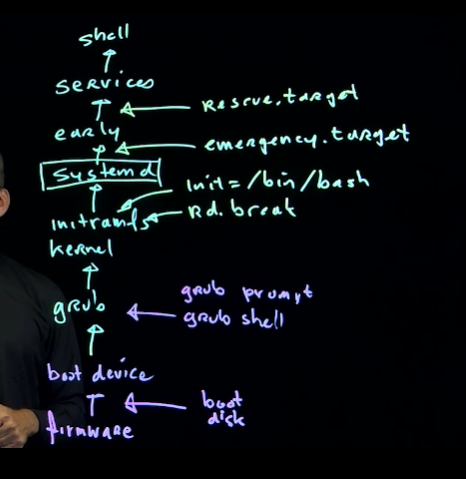 shell
services
rescue.target
early
emergency.target
systemd
init=/bin/bash
initramfs
Rd.break
kernel
grub prompt
grub
grub shell
boot device
boot
disk
firmware